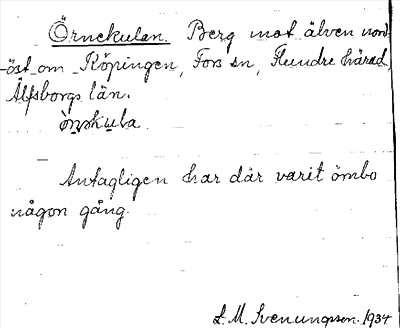 Örnekulan. Berg mot älven nord-
öst om Köpingen, Fors sn, Flundre härad,
Älfsborgs län.
Antagligen har där varit örnbo
någon gång.
S. M. Svenungsson. 1934